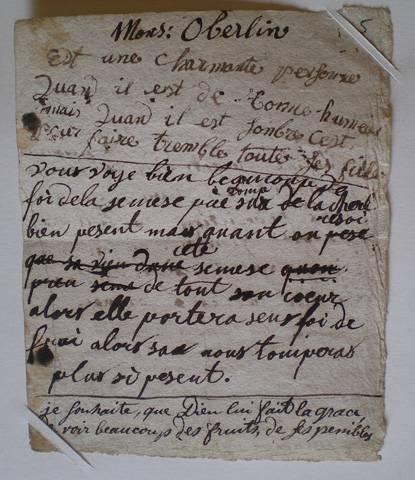 Mons: Oberlin 5
Est une charmante personne
Quand il est de bonne-humeur
mais Quand il est sombre c'est
pour faire tremble toute ses fille
vous voye bien beaucoup
foi de la semese
bien pesent mais quant on pese
cete
semese quon
de tout son coeur
alors elle portera seus foi de
frui alors sa nous tomperas
plus si pesent.
je souhaite, que Dieu lui fait la grace
voir beaucoup des fruits, de ses penibles